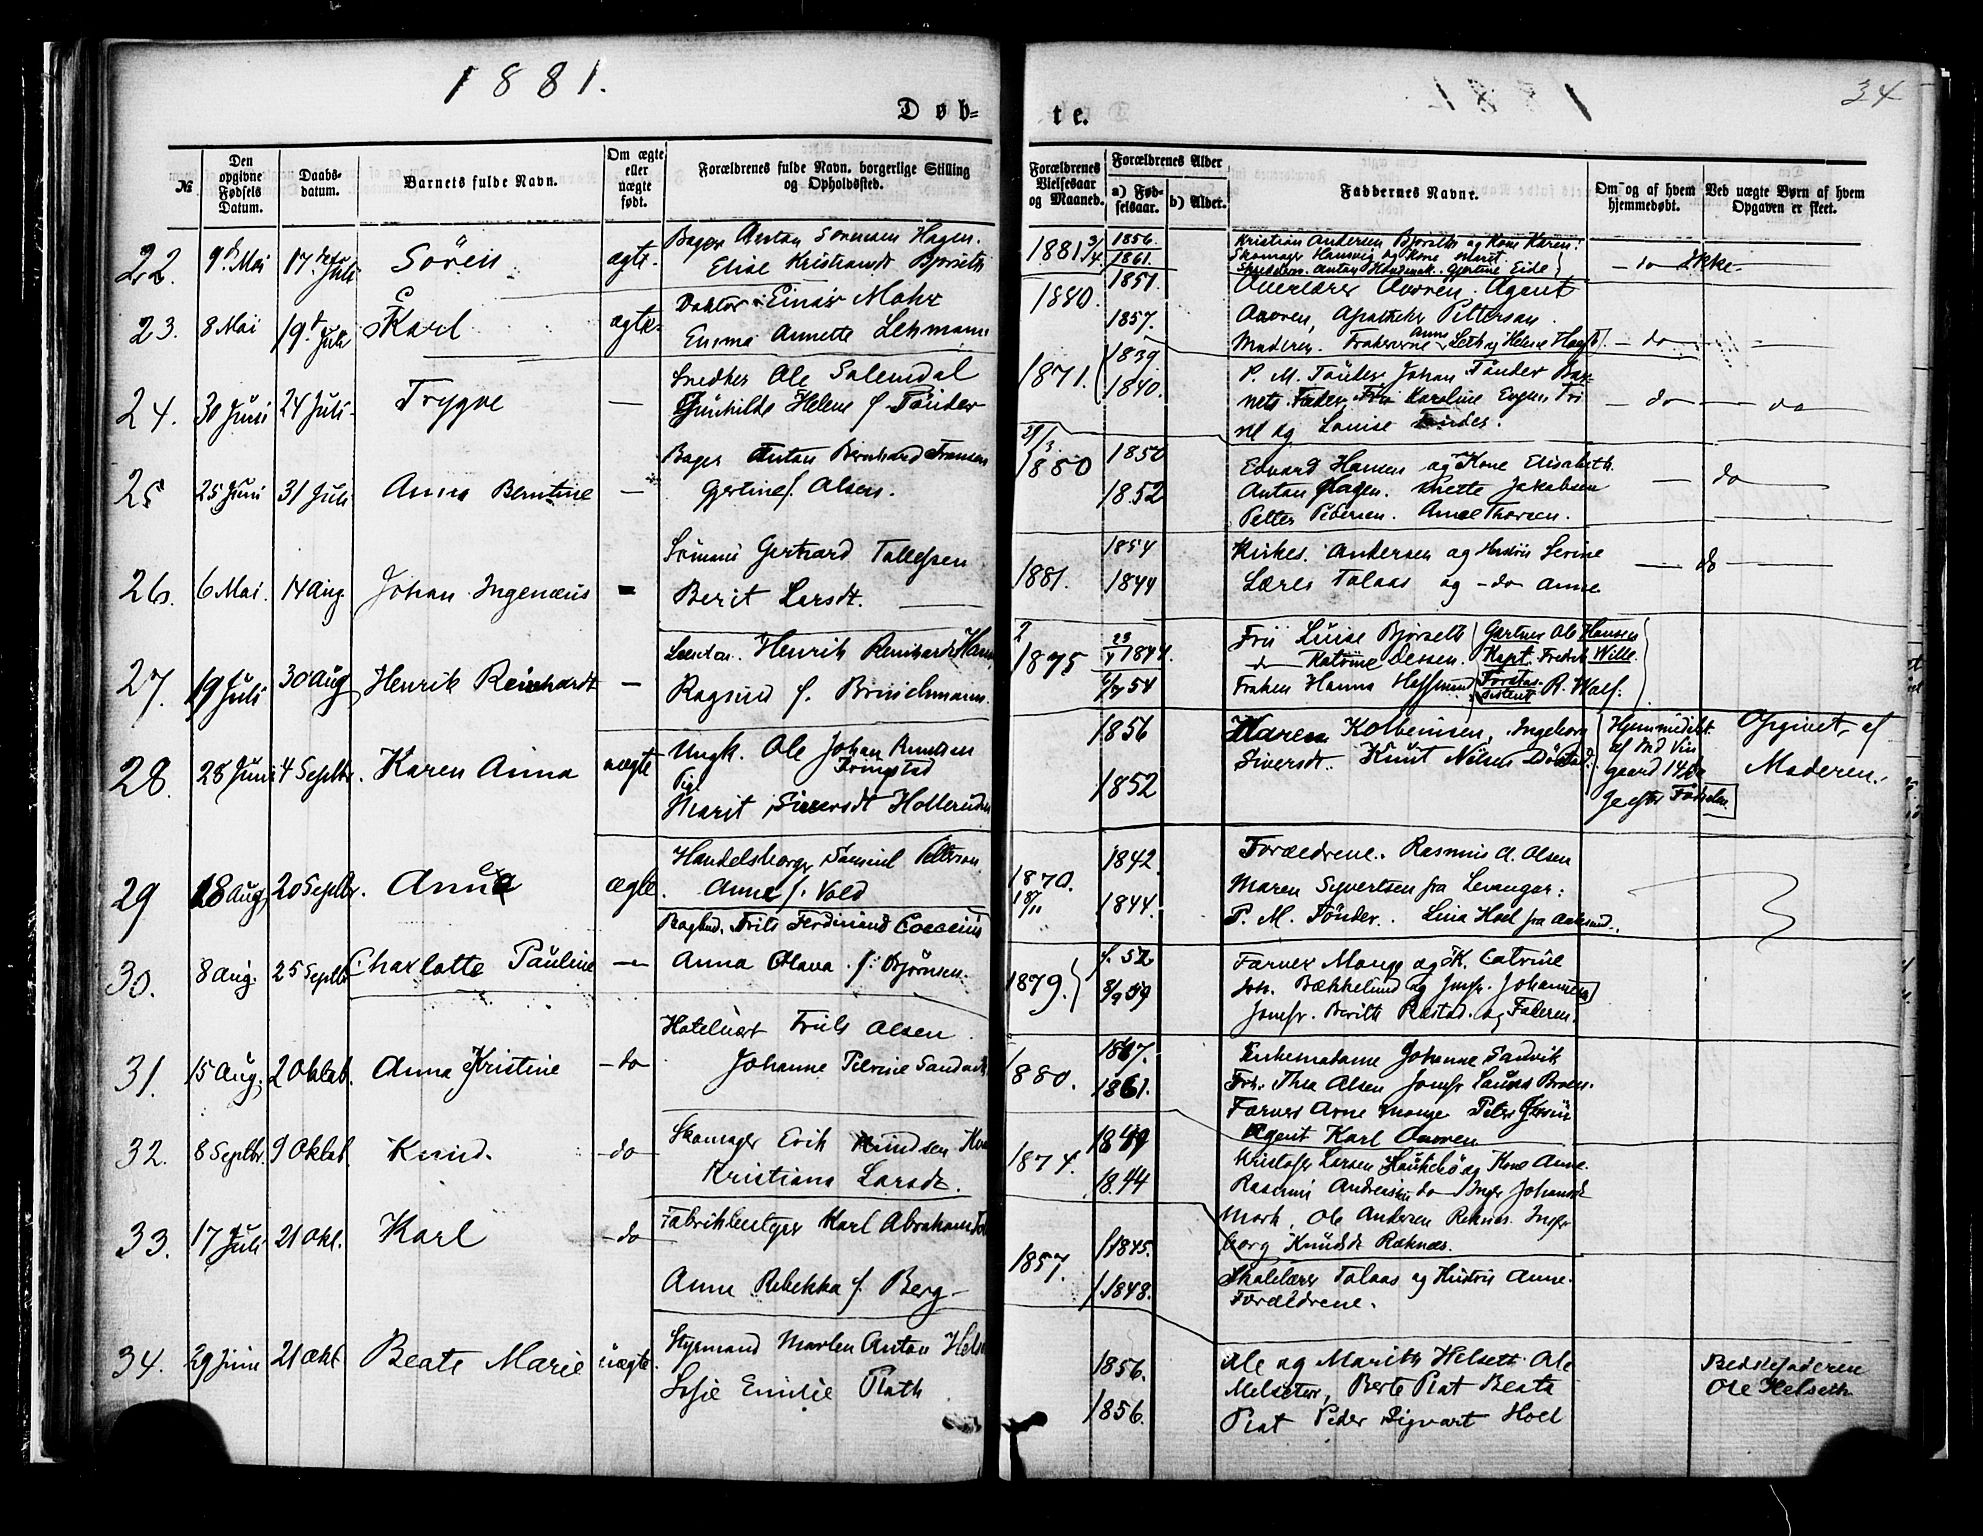 1881.
34
Døb-
te.
№
Den opgivne Fødsels Datum.
Daabs-datum.
Barnets fulde Navn.
Om ægte eller uægte født.
Forældrenes fulde Navn, borgerlige Stilling og Opholdssted.
Forældrenes Vielsesaar og Maaned.
Forældrenes Alder
a) Fødselsaar.
b) Alder.
Faddernes Navne.
Om og af hvem hjemmedøbt.
Ved uægte Børn af hvem Opgaven er skeet.
22. 9de Mai 17de Juli Sören ægte.
Bager Anton Sörensen Hagen.
Elise Kristiansdt Bjørseth
1881 3/4 1856. 1861.
Kristian Andersen Bjørseth og Kone Karen:
Skomager Hamsvig og Kone Marit
Anton Gjertine Eide
do Ikke
23. 8 Mai 19d Juli Karl ægte
Doktor Einar Mohr
Emma Annette Lehmann
1880. 1851. 1857.
Overlærer Aavren. Agent
Aavren, Apotheker Pettersen
Moderen. Frøknerne Anna Leth og Helene Hagb
do
24. 30 Juni 24 Juli Trygve —
Snedker Ole Solemdal
Gunhilde Helene f. Tönder
1871. 1839 1840.
P. M. Tönder Johan Tönder Bar-
nets Fader, Frü Karoline Evgen. Fri
nd og Louise Tönder.
do do
25 25 Juni 31 Juli Anna Berntine —
Bager Anton Bernhard Fransen
Gjertine f. Olsen.
29/3 1880 1850 1852
Edvard Hansen og Kone Elisabeth
Anton Hagen. Anette Jakobsen
Petter Pedersen. Anne Thoresen.
do
26. 6 Mai. 14 Aug. Johan Ingenæus
Sömand Gerhard Tollefsen
Berit Larsdt.
1881. 1854 1844
Kirkes. Andersen og Hustrü Serine
Lærer Talaas og do Anne
do
27. 19 Juli 30 Aug Henrik Reinhardt —
Henrik Reinhardt
Ragnild f. Brinchmann.
2 1875 23/4 1844. 6/7 54
Frü Luise Bjørseth Gartner Ole Hansen
do Katrine Dessen. Kapt. Fredrik Wille.
Frøken Hanna Hoffmand Forstas-sistent R. Wolf.
28. 28 Juni 4 Septbr. Karen Anna uægte
Ungk. Ole Johan Knudsen
Pige
Marit Siversdt Holterud
1856 1852
Maren Kolbensen, Ingeborg
Siversdt. Knut Nilsen
Hjemmedöbt
gaard 14 Da
ge efter Fødselen.
Opgivet af
Moderen.
29 18 Aug. 20 Septbr. Anna ægte.
Handelsborger Samuel Petterson
Anna f. Vold
1870. 18/11 1842 1844.
Forældrene. Rasmus A. Olsen
Maren Syvertsen fra Levanger:
P. M. Tönder. Lina Hoel fra Aalesund.
30. 8 Aug. 25 Septbr Charlotte Pauline —
Frits Ferdinand Cocceius
Anna Olava f: Bjørnsen.
1879. f. 52 8/9 59
Farver Monge og K. Catrine
Joh. Bækkelund og Jomfr. Johannesen
Jomfr. Berith Rostad. og Faderen.
31. 15 Aug. 2 Oktob. Anna Kristine do
Hotelvert Truls Olsen
Johanne Petrine Sandvik
1880. 1847. 1861.
Enkemadame Johanne Sandvik
Frk. Thea Olsen Jomfr Laura Broen.
Farver Arne Monge
Agent Karl Aavren
32. 8 Septbr. 9 Oktob. Knud. do
Skomager Erik Knudsen
Kristiana Larsdt.
1874. 1849 1844
Kristofer Larsen og Kone Anne.
Rasmus Andreassen do Inger Johansdt
Mork. Ole Andersen Reknes. Inge-
borg Knudsdt Reknæs.
33. 17 Juli 21 Okt. Karl do
Fabrikbestyrer Karl Abraham
Anne Rebekka f. Berg
1857. 1845. 1848.
Skolelærer Talaas og Hustru Anne.
Forældrene.
34. 29 Juni 21 Okt Beate Marie uægte.
Styrmand Morten Anton
Sofie Emilie Plath
1856. 1856.
Ole og Marith Helseth Ole
Melseter, Berte Plat Beata
Plat Peder Sigvart Hoel
Bedstefaderen
Ole Helseth